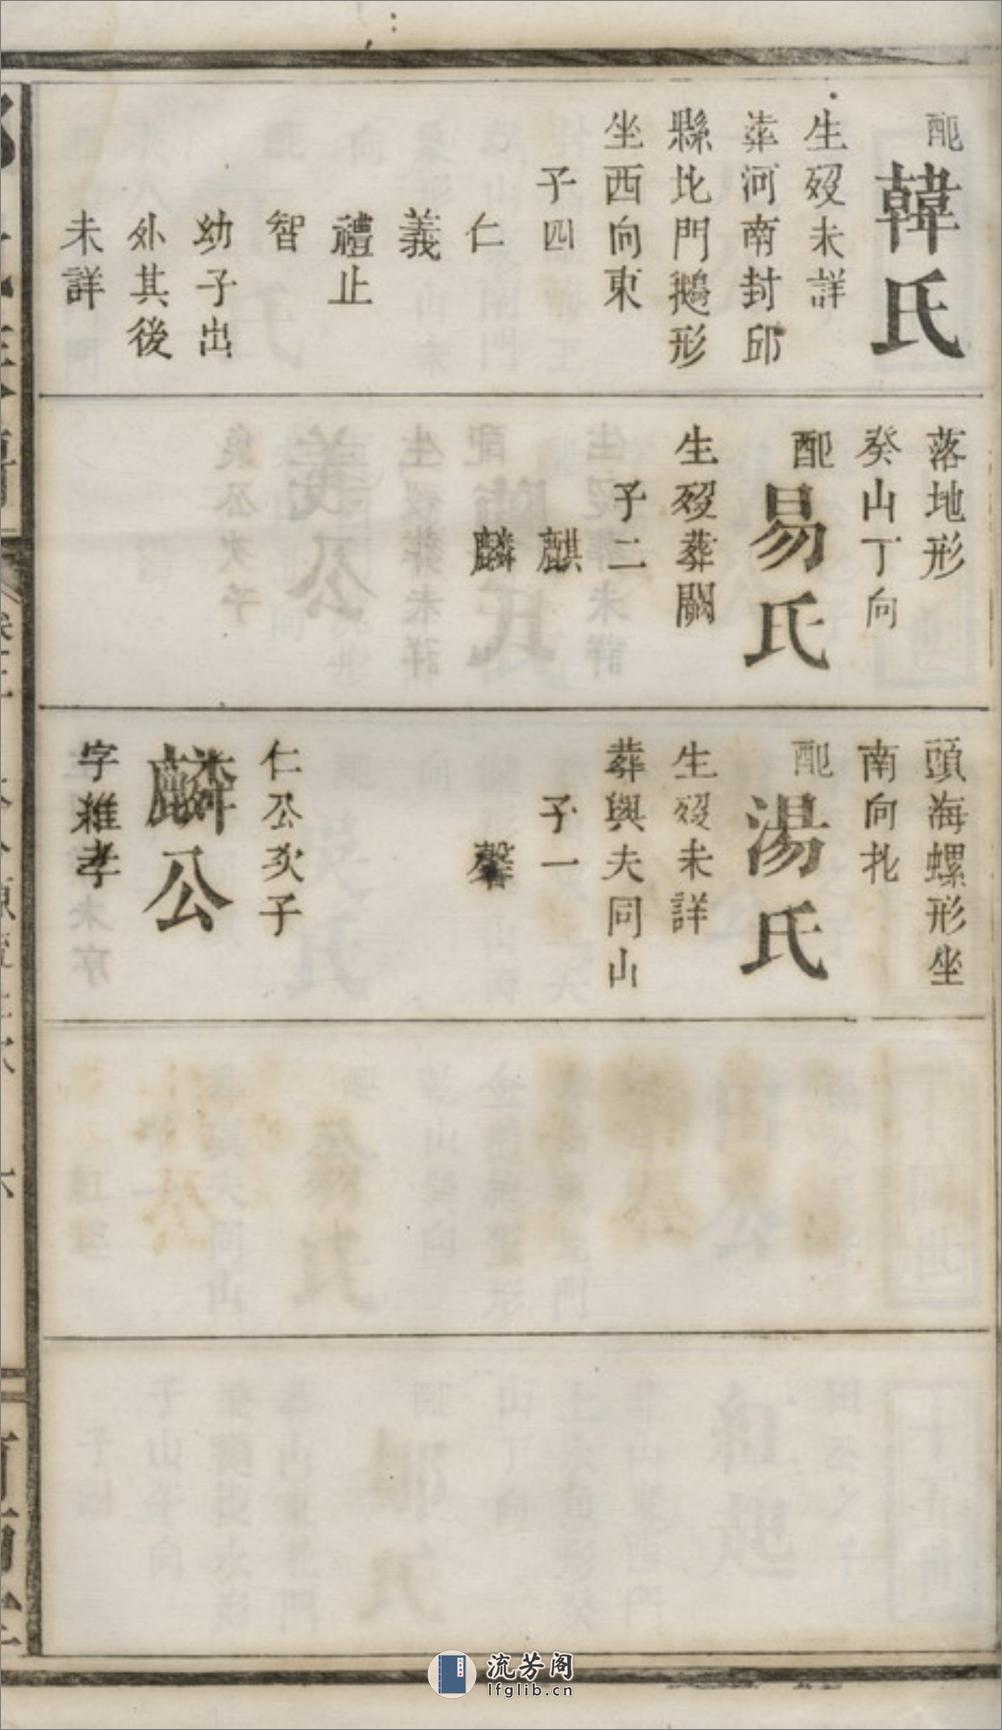 配韓氏
生歿未詳
葬河南封邱
縣北門鵝形
坐西向東
子四
仁
義
禮止
智
幼子出
外其後
未詳
落地形
癸山丁向
配易氏
生歿葬闕
子二
麒
麟
頭海螺形坐
南向北
配湯氏
生歿未詳
葬與夫同山
子一
馨
仁公次子
麟公
字維孝
流芳阁
lfglib.cn